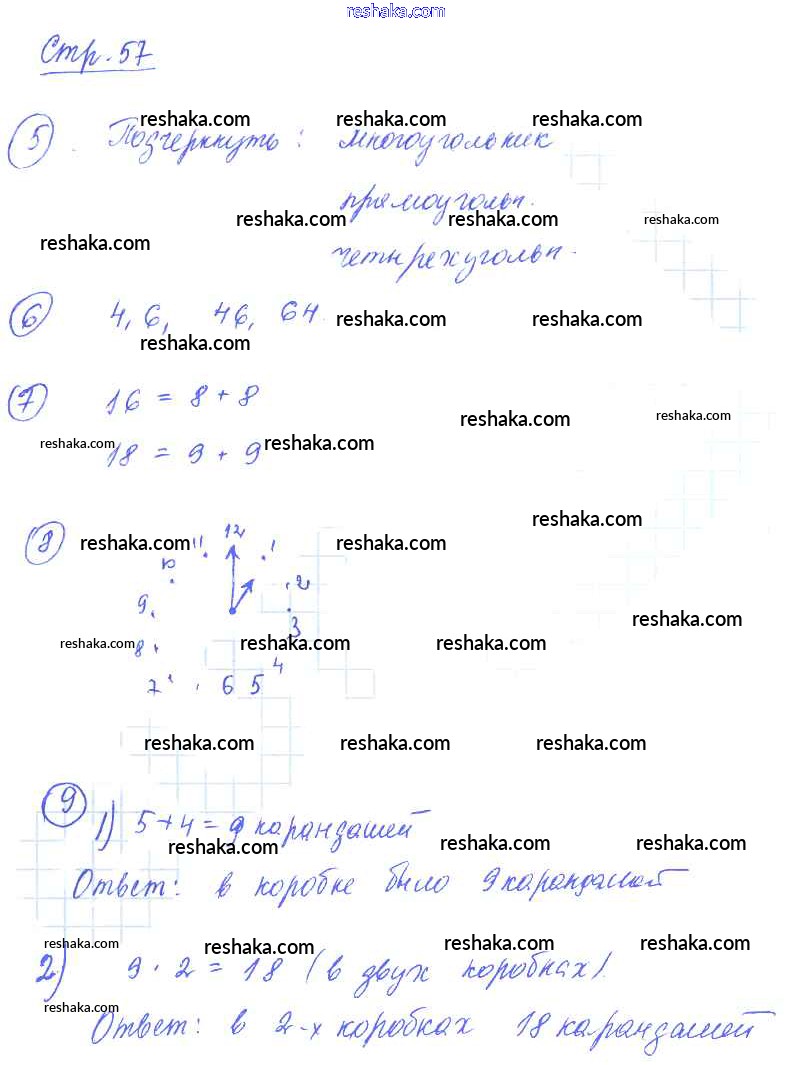 reshaka.com
Стр. 57
reshaka.com reshaka.com reshaka.com
5. Подчеркнуть: многоугольник
прямоугольн.
reshaka.com reshaka.com reshaka.com
reshaka.com
четырехугольн.
6 4, 6, 46, 64.
reshaka.com reshaka.com
reshaka.com
7 16 = 8 + 8
reshaka.com reshaka.com
reshaka.com reshaka.com
18 = 9 + 9
reshaka.com
8 reshaka.com 11 12 1 reshaka.com
10 2
9 3
reshaka.com
reshaka.com 8 reshaka.com reshaka.com
7 6 5 4
reshaka.com reshaka.com reshaka.com
9 1) 5+4=9 карандашей
reshaka.com reshaka.com reshaka.com
Ответ: в коробке было 9 карандашей
reshaka.com reshaka.com reshaka.com reshaka.com
2) 9 · 2 = 18 (в двух коробках).
reshaka.com
Ответ: в 2-х коробках 18 карандашей